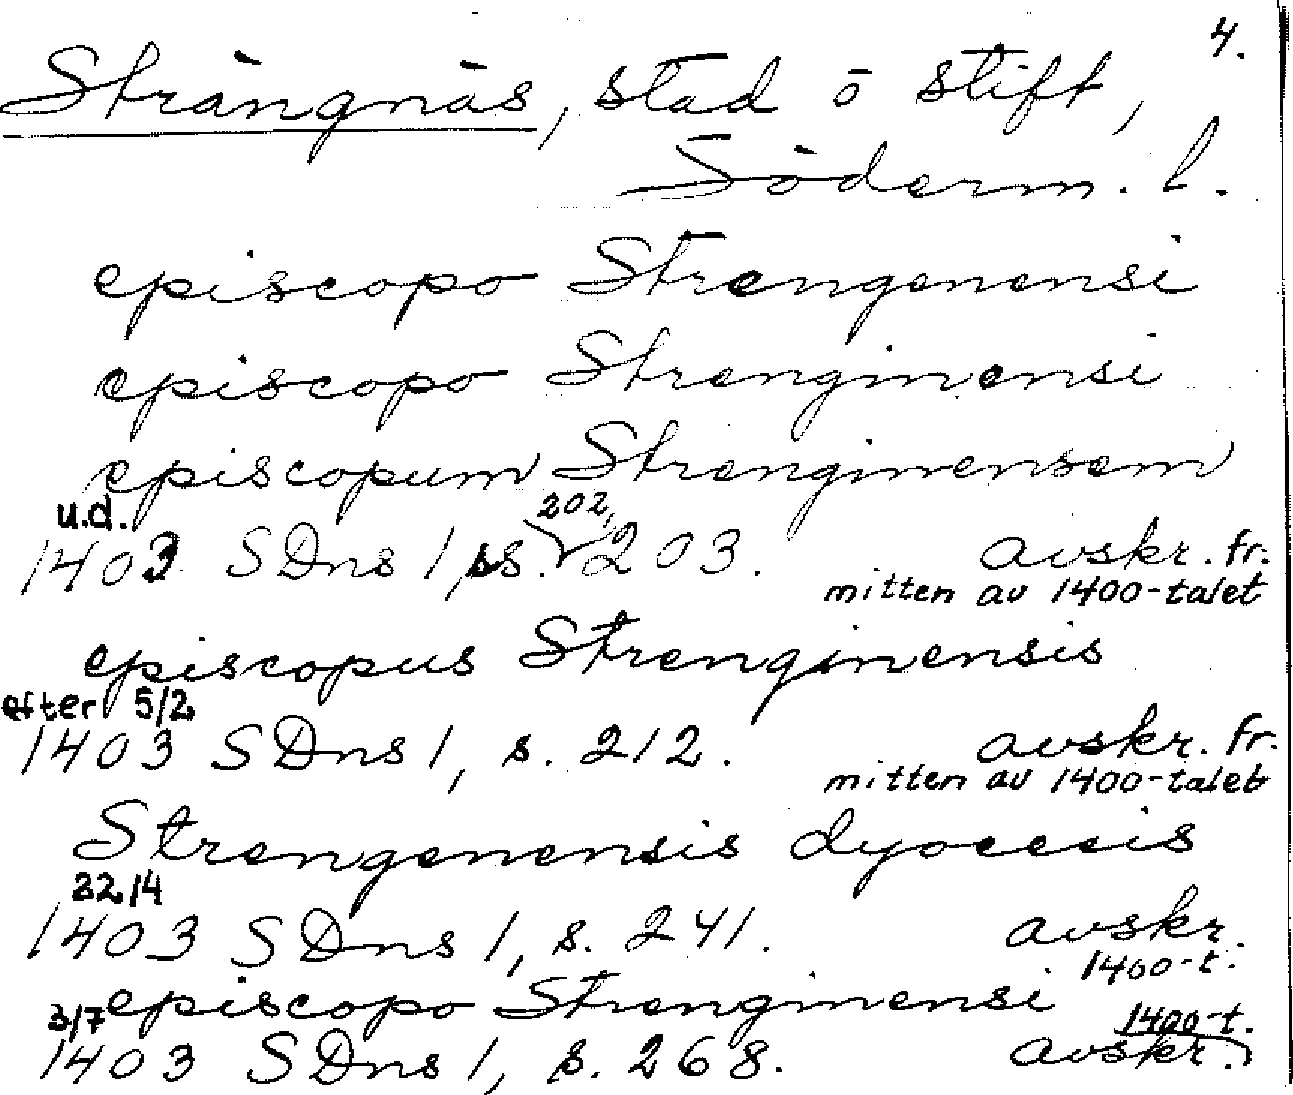 4.
Strängnäs, stad o stift,
Söderm. l.
episcopo Strengenensi
episcopo Strenginensi
episcopum Strenginensem
u.d. 202,
1403 SDns 1 ss. 203. avskr. fr.
mitten av 1400-talet
episcopus Strenginensis
efter 5/2
1403 SDns 1, s. 212. avskr. fr.
mitten av 1400-talet
Strengenensis dyocesis
22/4
1403 SDns 1, s. 241. avskr.
1400-t.
episcopo Strenginensi
3/7 1400-t.
1403 SDns 1, s. 268. avskr.